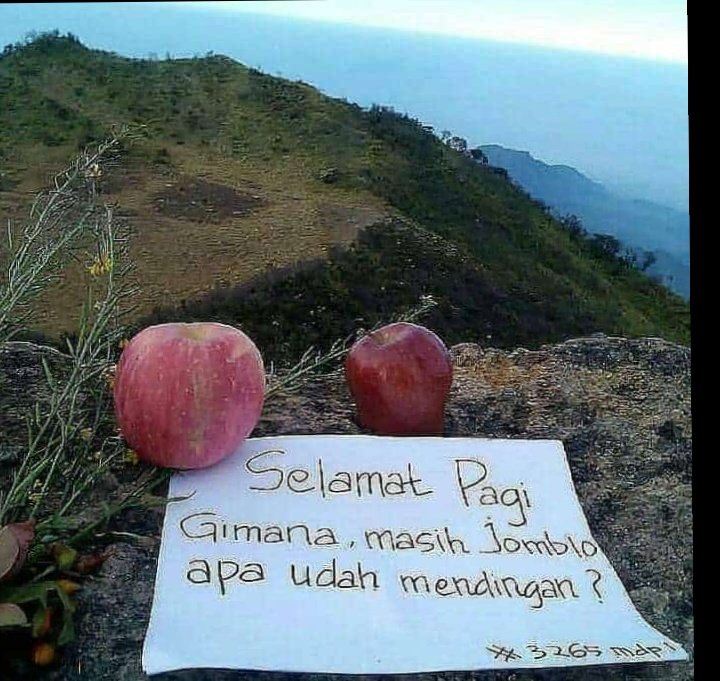 Selamat Pagi
Gimana, masih jomblo
apa udah mendingan?
3265 mdpl